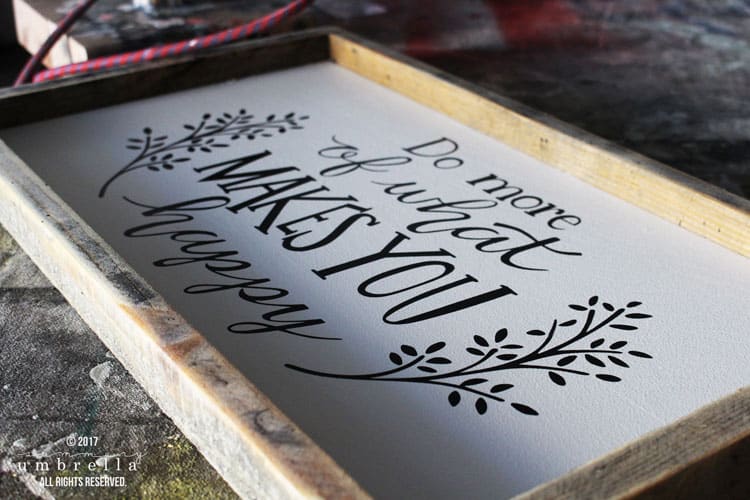 Do more
of what
MAKES YOU
happy
© 2017
mommy
umbrella
ALL RIGHTS RESERVED.